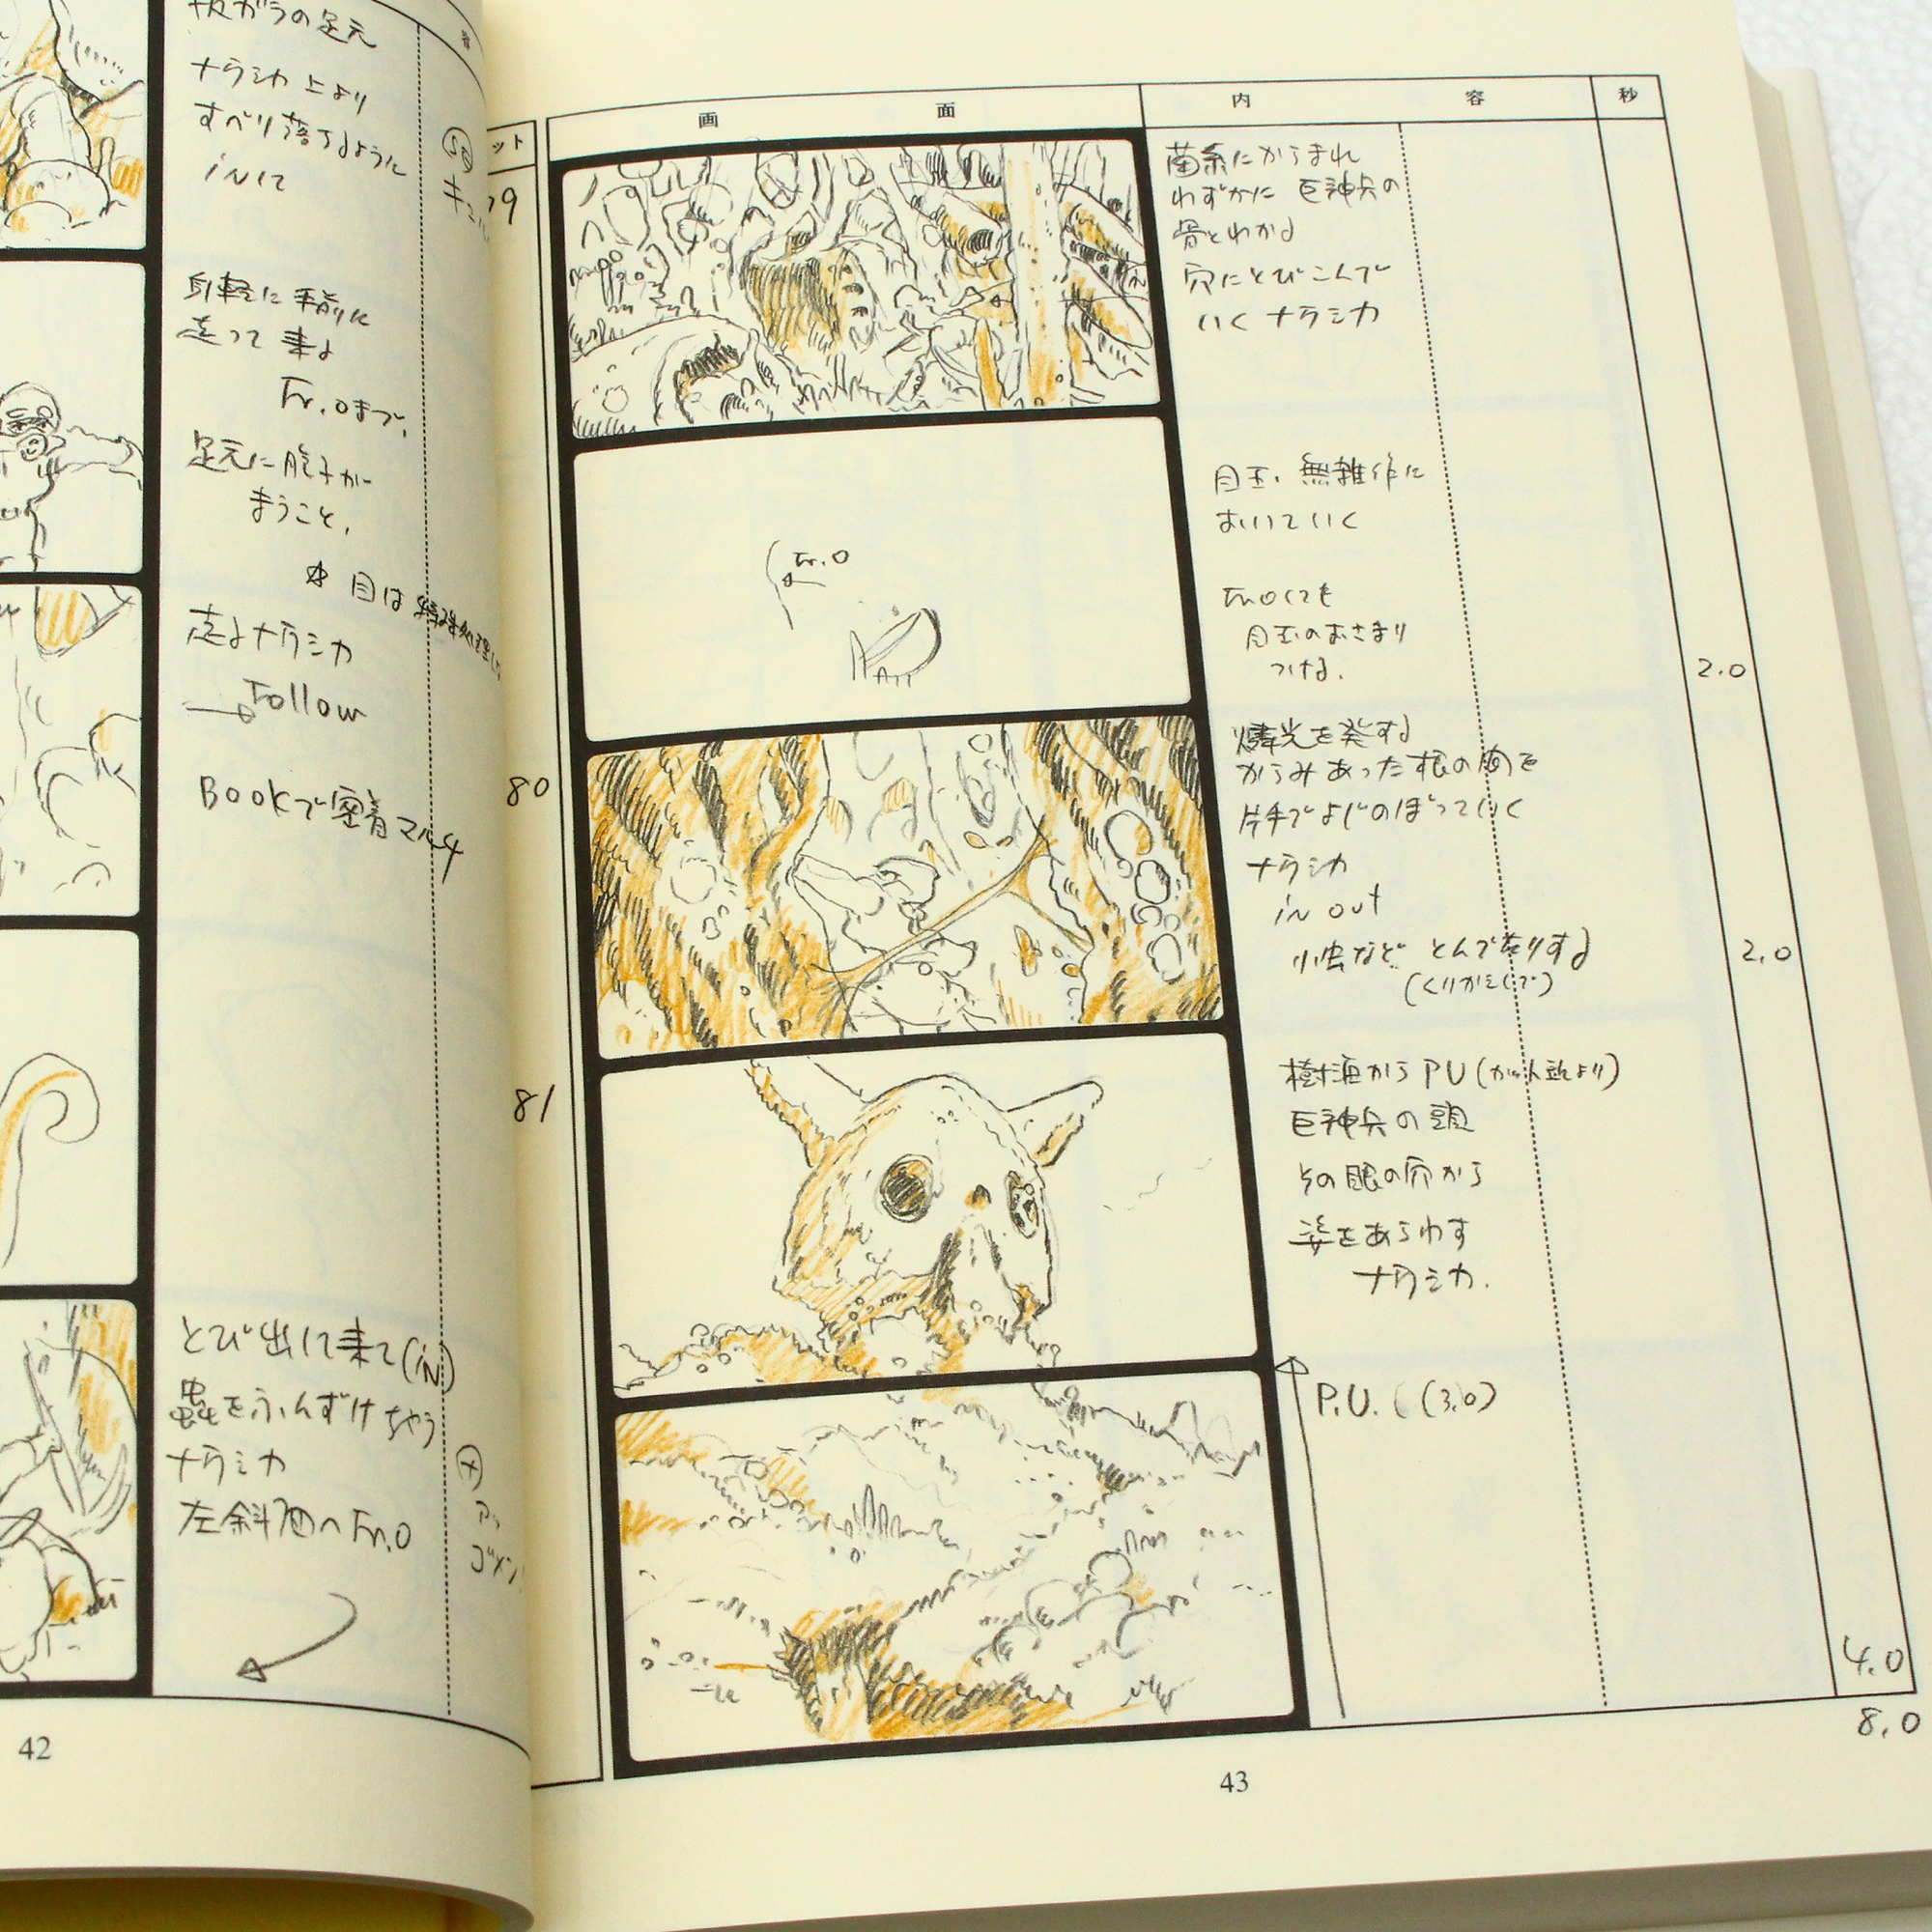 抜ガラの足元
ナウシカ 上より
すべり落ちるように
inして
身軽に手前に
走って来る
Fr.oまで、
足元に胞子が
まうこと、
走るナウシカ
Follow
BOOKで密着マルチ
とび出して来て(iN)
蟲をふんずけちゃう
ナウシカ
左斜面へFr.O
42
ット
画 面 内 容 秒
79
菌糸にからまれ
わずかに 巨神兵の
骨とわかる
穴にとびこんで
いく ナウシカ
Fr.O
目玉、無雑作に
おいていく
Fr.oしても
目玉のおさまり
つける.
2.0
80
燐光を発する
からみあった根の間を
片手でよじのぼっていく
ナウシカ
in out
小虫など とんで
(くりかえしで)
2.0
81
樹海からPU
巨神兵の頭
その眼の穴から
姿をあらわす
ナウシカ.
P.U. (3.0)
4.0
8.0
43